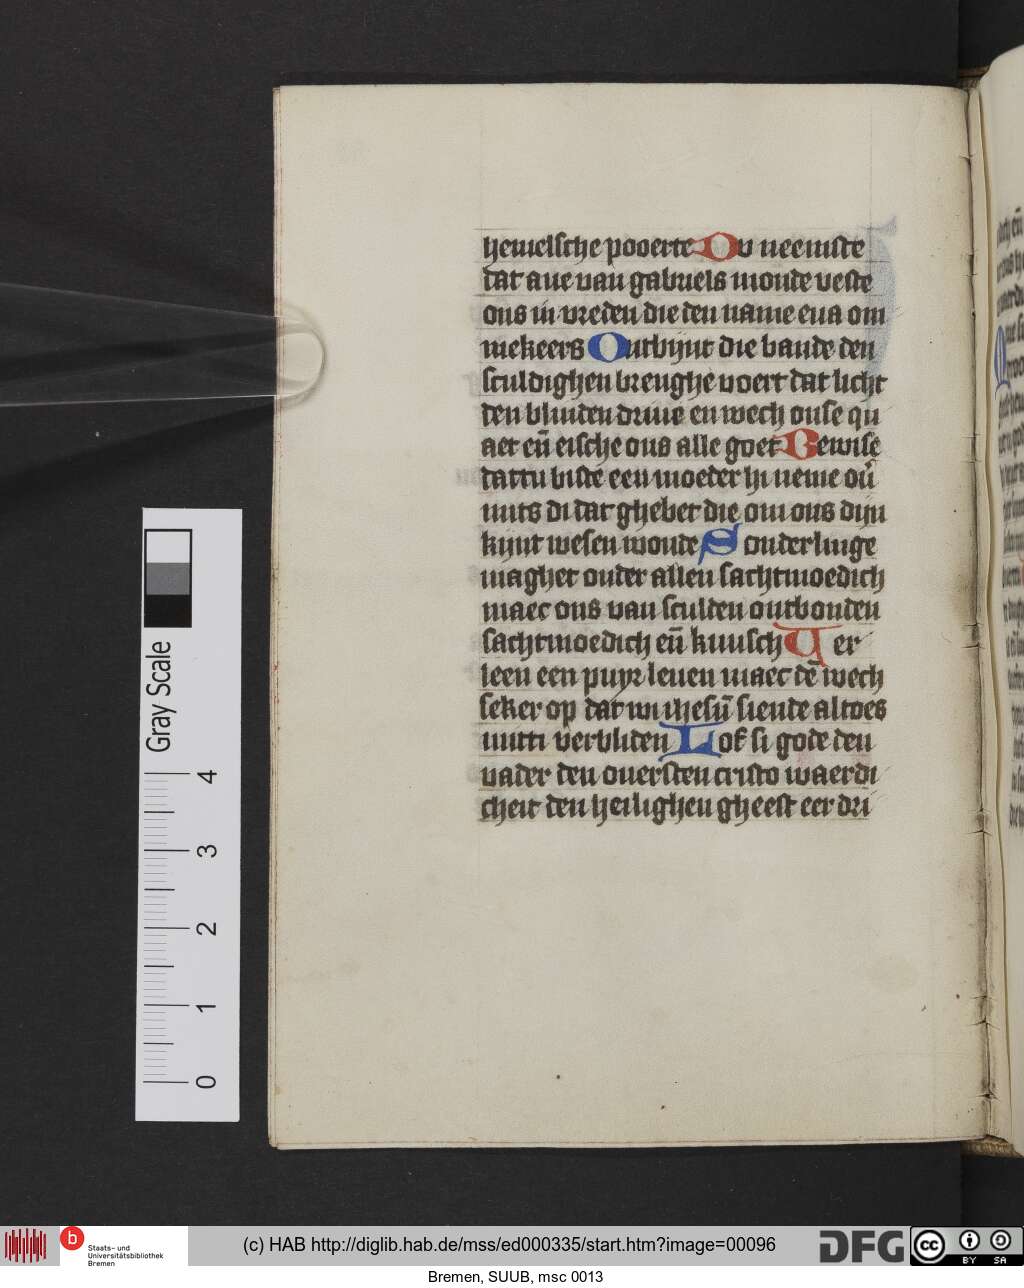 hemelsche pooerte Ou neemste
dat aue van gabriels monde veste
ons in vreden die den name eua om
mekeers Ontbijnt die bande den
sculdighen brenghe voert dat licht
den blinden driue en wech onse qu
aet eñ eische ons alle goet Bewise
dattu biste een moeder hi neme ou̅
mits di dat ghebet die om ons dijn
kijnt wesen wonde Sonderlinge
maghet onder allen sachtmoedich
maec ons van sculden ontbonden
sachtmoedich eñ kuusch Ver
leen een puyr leuen maec dē wech
seker op dat wi ihesū siende altoes
mitti verbliden Lof si gode den
vader den ouersten cristo waerdi
cheit den heilighen gheest eer dri
Gray Scale
4
3
2
1
0
b Staats- und
Universitätsbibliothek
Bremen
(c) HAB http://diglib.hab.de/mss/ed000335/start.htm?image=00096
DFG
cc BY SA
Bremen, SUUB, msc 0013